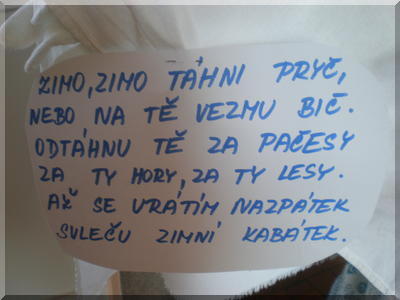 ZIMO, ZIMO TÁHNI PRYČ,
NEBO NA TĚ VEZMU BIČ.
ODTÁHNU TĚ ZA PAČESY
ZA TY HORY, ZA TY LESY.
AŽ SE VRÁTÍM NAZPÁTEK
SVLEČU ZIMNÍ KABÁTEK.